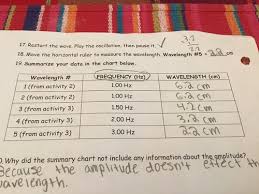 17. Restart the wave. Play the oscillation, then pause it. ✓
18. Move the horizontal ruler to measure the wavelength. Wavelength #5 = 2.2 cm
19. Summarize your data in the chart below.
Wavelength # FREQUENCY (Hz) WAVELENGTH (cm)
1 (from activity 2) 1.00 Hz 6.2 cm
2 (from activity 2) 1.00 Hz 6.2 cm
3 (from activity 3) 1.50 Hz 4.2 cm
4 (from activity 3) 2.00 Hz 3.2 cm
5 (from activity 3) 3.00 Hz 2.2 cm
0. Why did the summary chart not include any information about the amplitude?
Because the amplitude doesn't effect the
wavelength.